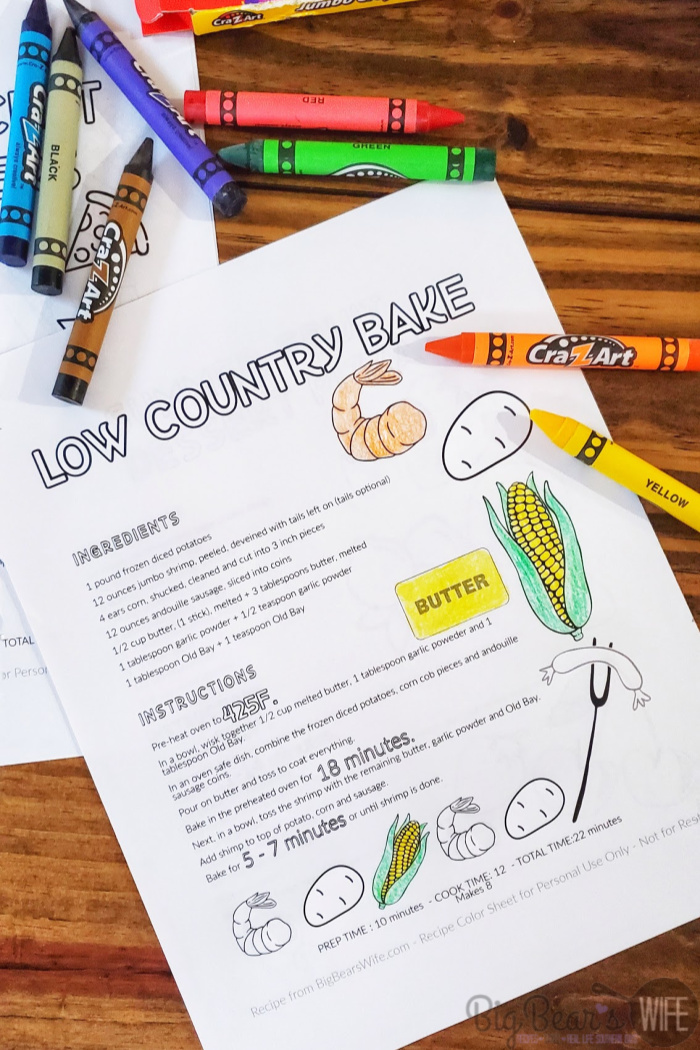 CraZArt
Jumbo
RED
GREEN
CraZArt
CraZArt
BLACK
CraZArt
CraZArt
CraZArt
YELLOW
LOW COUNTRY BAKE
INGREDIENTS
1 pound frozen diced potatoes
12 ounces jumbo shrimp, peeled, deveined with tails left on (tails optional)
4 ears corn, shucked, cleaned and cut into 3 inch pieces
12 ounces andouille sausage, sliced into coins
1/2 cup butter, (1 stick), melted + 3 tablespoons butter, melted
1 tablespoon garlic powder + 1/2 teaspoon garlic powder
1 tablespoon Old Bay + 1 teaspoon Old Bay
BUTTER
INSTRUCTIONS
Pre-heat oven to 425F.
In a bowl, wisk together 1/2 cup melted butter, 1 tablespoon garlic poweder and 1
tablespoon Old Bay.
In an oven safe dish, combine the frozen diced potatoes, corn cob pieces and andouille
sausage coins.
Pour on butter and toss to coat everything.
Bake in the preheated oven for 18 minutes.
Next, in a bowl, toss the shrimp with the remaining butter, garlic powder and Old Bay.
Add shimp to top of potato, corn and sausage.
Bake for 5 - 7 minutes or until shrimp is done.
PREP TIME : 10 minutes - COOK TIME: 12 - TOTAL TIME:22 minutes
Makes 8
Recipe from BigBearsWife.com - Recipe Color Sheet for Personal Use Only - Not for Resa
TOTAL
or Person
Big Bear's WIFE